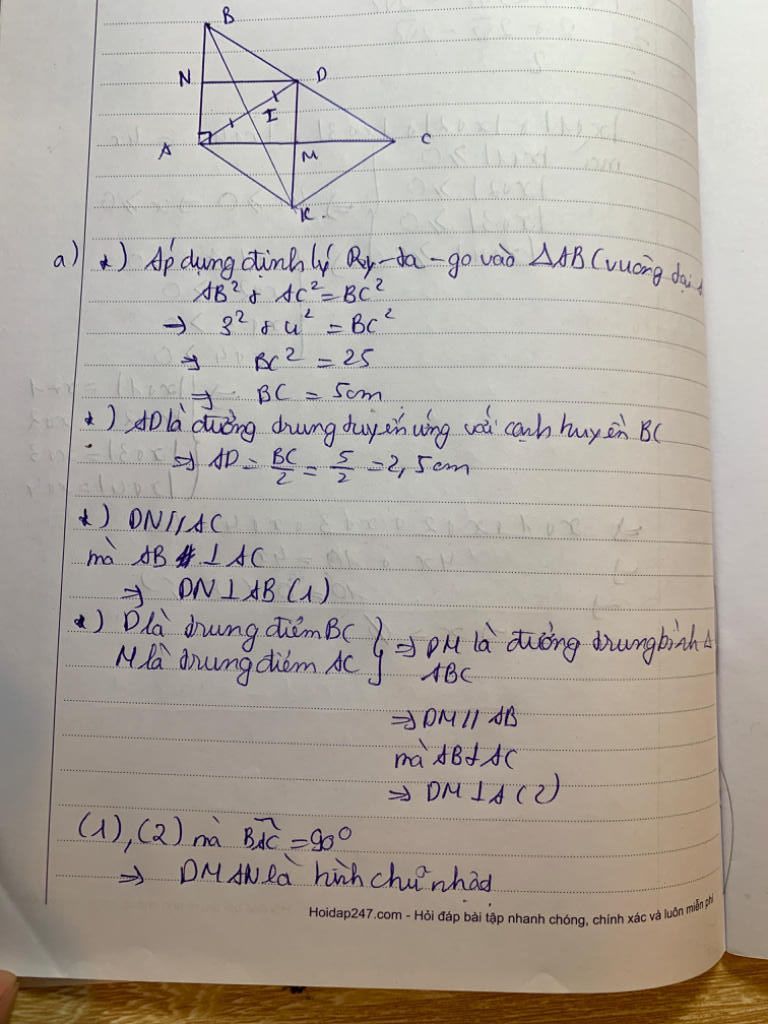 B
N
D
I
A
M
C
K.
a) *) Áp dụng định lý Py-ta-go vào ΔABC vuông tại A
AB² + AC² = BC²
→ 3² + 4² = BC²
⇒ BC² = 25
⇒ BC = 5cm
*) AD là đường trung tuyến ứng với cạnh huyền BC
⇒ AD = BC/2 = 5/2 = 2,5cm
*) DN // AC
mà AB ⊥ AC
⇒ DN ⊥ AB (1)
*) D là trung điểm BC } ⇒ DM là đường trung bình Δ
M là trung điểm AC } ABC
⇒ DM // AB
mà AB ⊥ AC
⇒ DM ⊥ A (2)
(1), (2) mà BAC = 90°
⇒ DMAN là hình chữ nhật
Hoidap247.com - Hỏi đáp bài tập nhanh chóng, chính xác và luôn miễn phí